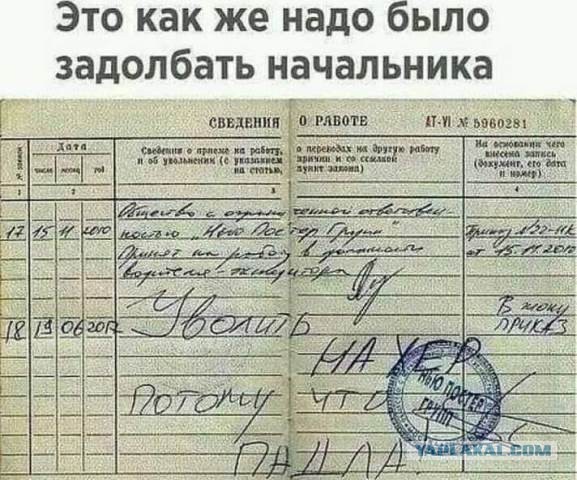 Это как же надо было
задолбать начальника
СВЕДЕНИЯ О РАБОТЕ АТ-VI № 5960281
№ записи
Дата
число месяц год
Сведения о приеме на работу,
и об увольнении (с указанием
на статью,
о переводах на другую работу
причин и со ссылкой
пункт закона)
На основании чего
внесена запись
(документ, его дата
и номер)
1 2 3 4
Общество с ограниченной ответствен-
17 15 11 2010 ностью „Нью Постер Групп" Приказ №22-НК
Принят на работу в должности от 15.11.2010
водителя-экспедитора
18 19 06 2012 Уволить В жопу
ПРИКАЗ
НА ХЕР
Потому что
ПАДЛА
НЬЮ ПОСТЕР
ГРУПП
YAPLAKAL.COM